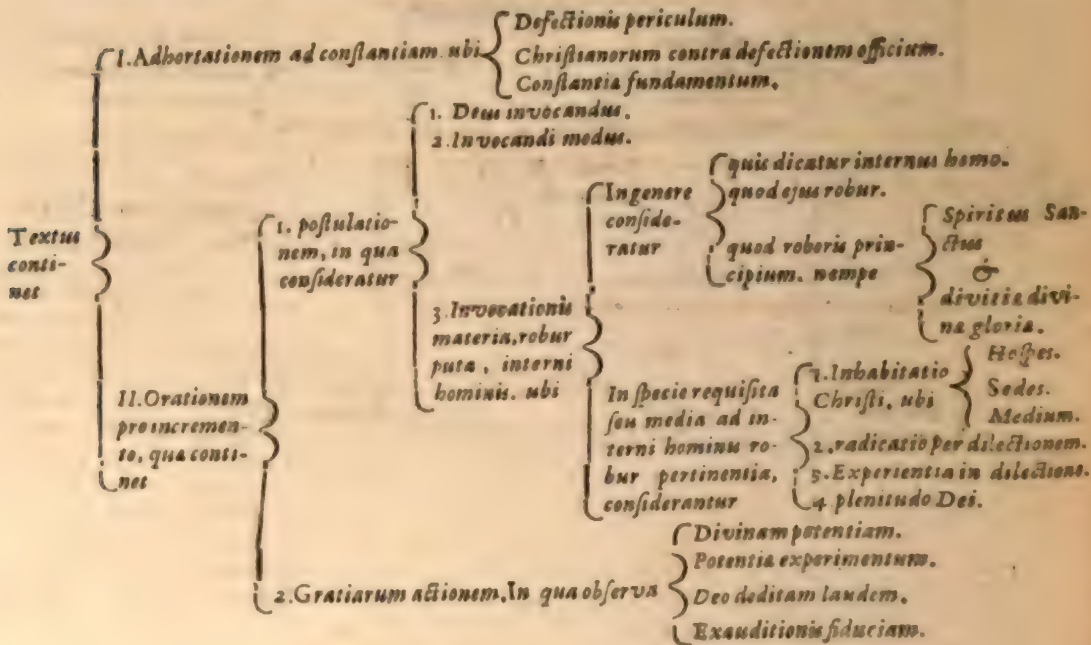 Textus
conti-
net
I. Adhortationem ad constantiam. ubi
Defectionis periculum.
Christianorum contra defectionem officium.
Constantia fundamentum.
II. Orationem
pro incremen-
to, qua conti-
net
1. postulatio-
nem, in qua
consideratur
1. Deus invocandus.
2. Invocandi modus.
3. Invocationis
materia, robur
puta, interni
hominis. ubi
In genere
conside-
ratur
quis dicatur internus homo.
quod ejus robur.
quod roboris prin-
cipium. nempe
Spiritus San-
ctus
&
divitiæ divi-
næ gloriæ.
In specie requisita
seu media ad in-
terni hominis ro-
bur pertinentia,
considerantur
1. Inhabitatio
Christi, ubi
Hospes.
Sedes.
Medium.
2. radicatio per dilectionem.
3. Experientia in dilectione.
4. plenitudo Dei.
2. Gratiarum actionem. In qua observa
Divinam potentiam.
Potentia experimentum.
Deo deditam laudem.
Exauditionis fiduciam.